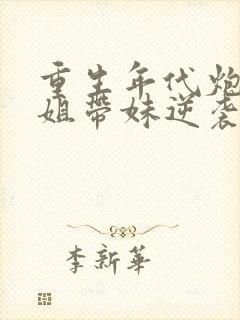 重生年代炮
姐带妹逆袭
李新华